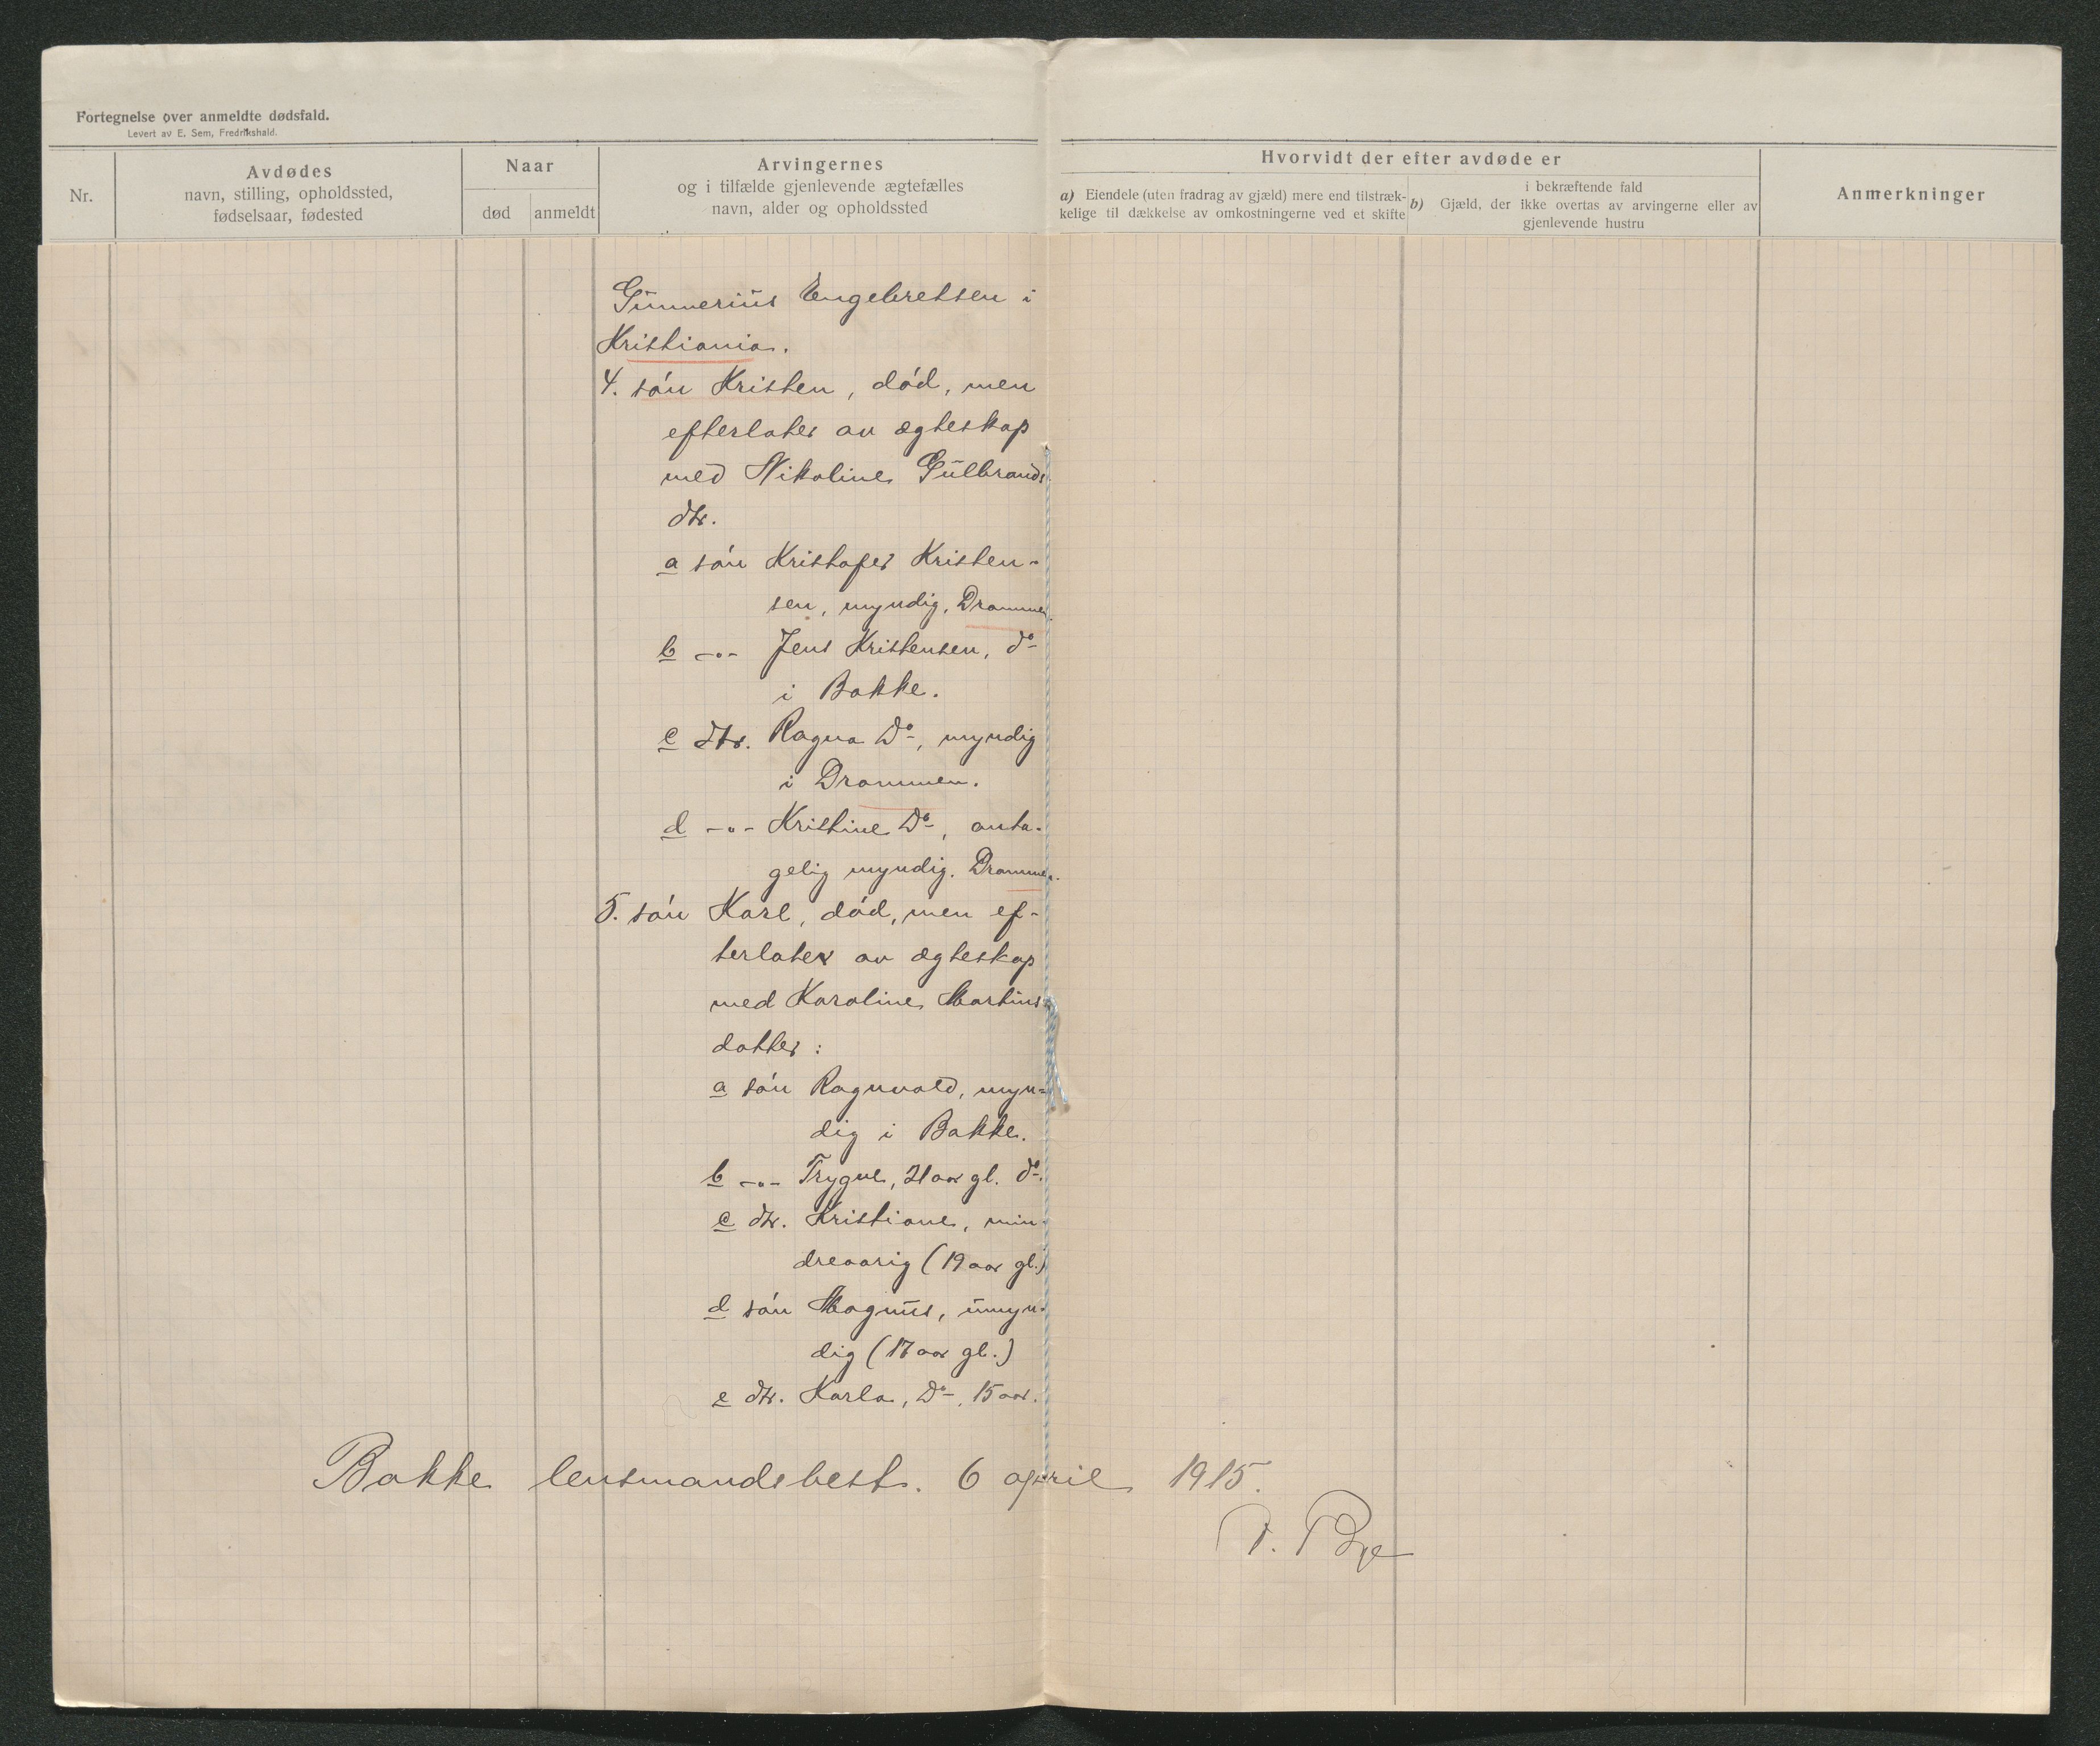 Fortegnelse over anmeldte dødsfald.
Levert av E. Sem, Fredrikshald.
Nr.
Avdødes
navn, stilling, opholdssted,
fødselsaar, fødested
Naar
død
anmeldt
Arvingernes
og i tilfælde gjenlevende ægtefælles
navn, alder og opholdssted
Hvorvidt der efter avdøde er
a) Eiendele (uten fradrag av gjæld) mere end tilstræk-
kelige til dækkelse av omkostningerne ved et skifte
i bekræftende fald
b) Gjæld, der ikke overtas av arvingerne eller av
gjenlevende hustru
Anmerkninger
Gunnerius Engebretsen i
Kristiania.
4. søn Kristen, død, men
efterlater av ægteskap
med Nikoline Gulbrands
dtr.
a søn Kristofer Kristen-
sen, myndig, Drammen
b -"- Jens Kristensen, do
i Bakke.
c dtr. Ragna Do, myndig
i Drammen.
d -"- Kristine Do, anta-
gelig myndig. Drammen.
5. søn Karl, død, men ef-
terlater av ægteskap
med Karoline Martins-
datter:
a søn Ragnvald, myn-
dig i Bakke.
b -"- Trygve, 21 aar gl. do.
c dtr. Kristiane, min-
dreaarig (19 aar gl.)
d søn Magnus, umyn-
dig (17 aar gl.)
e dtr. Karla, Do, 15 aar.
Bakke lensmandsbest. 6 april 1915.
Bye